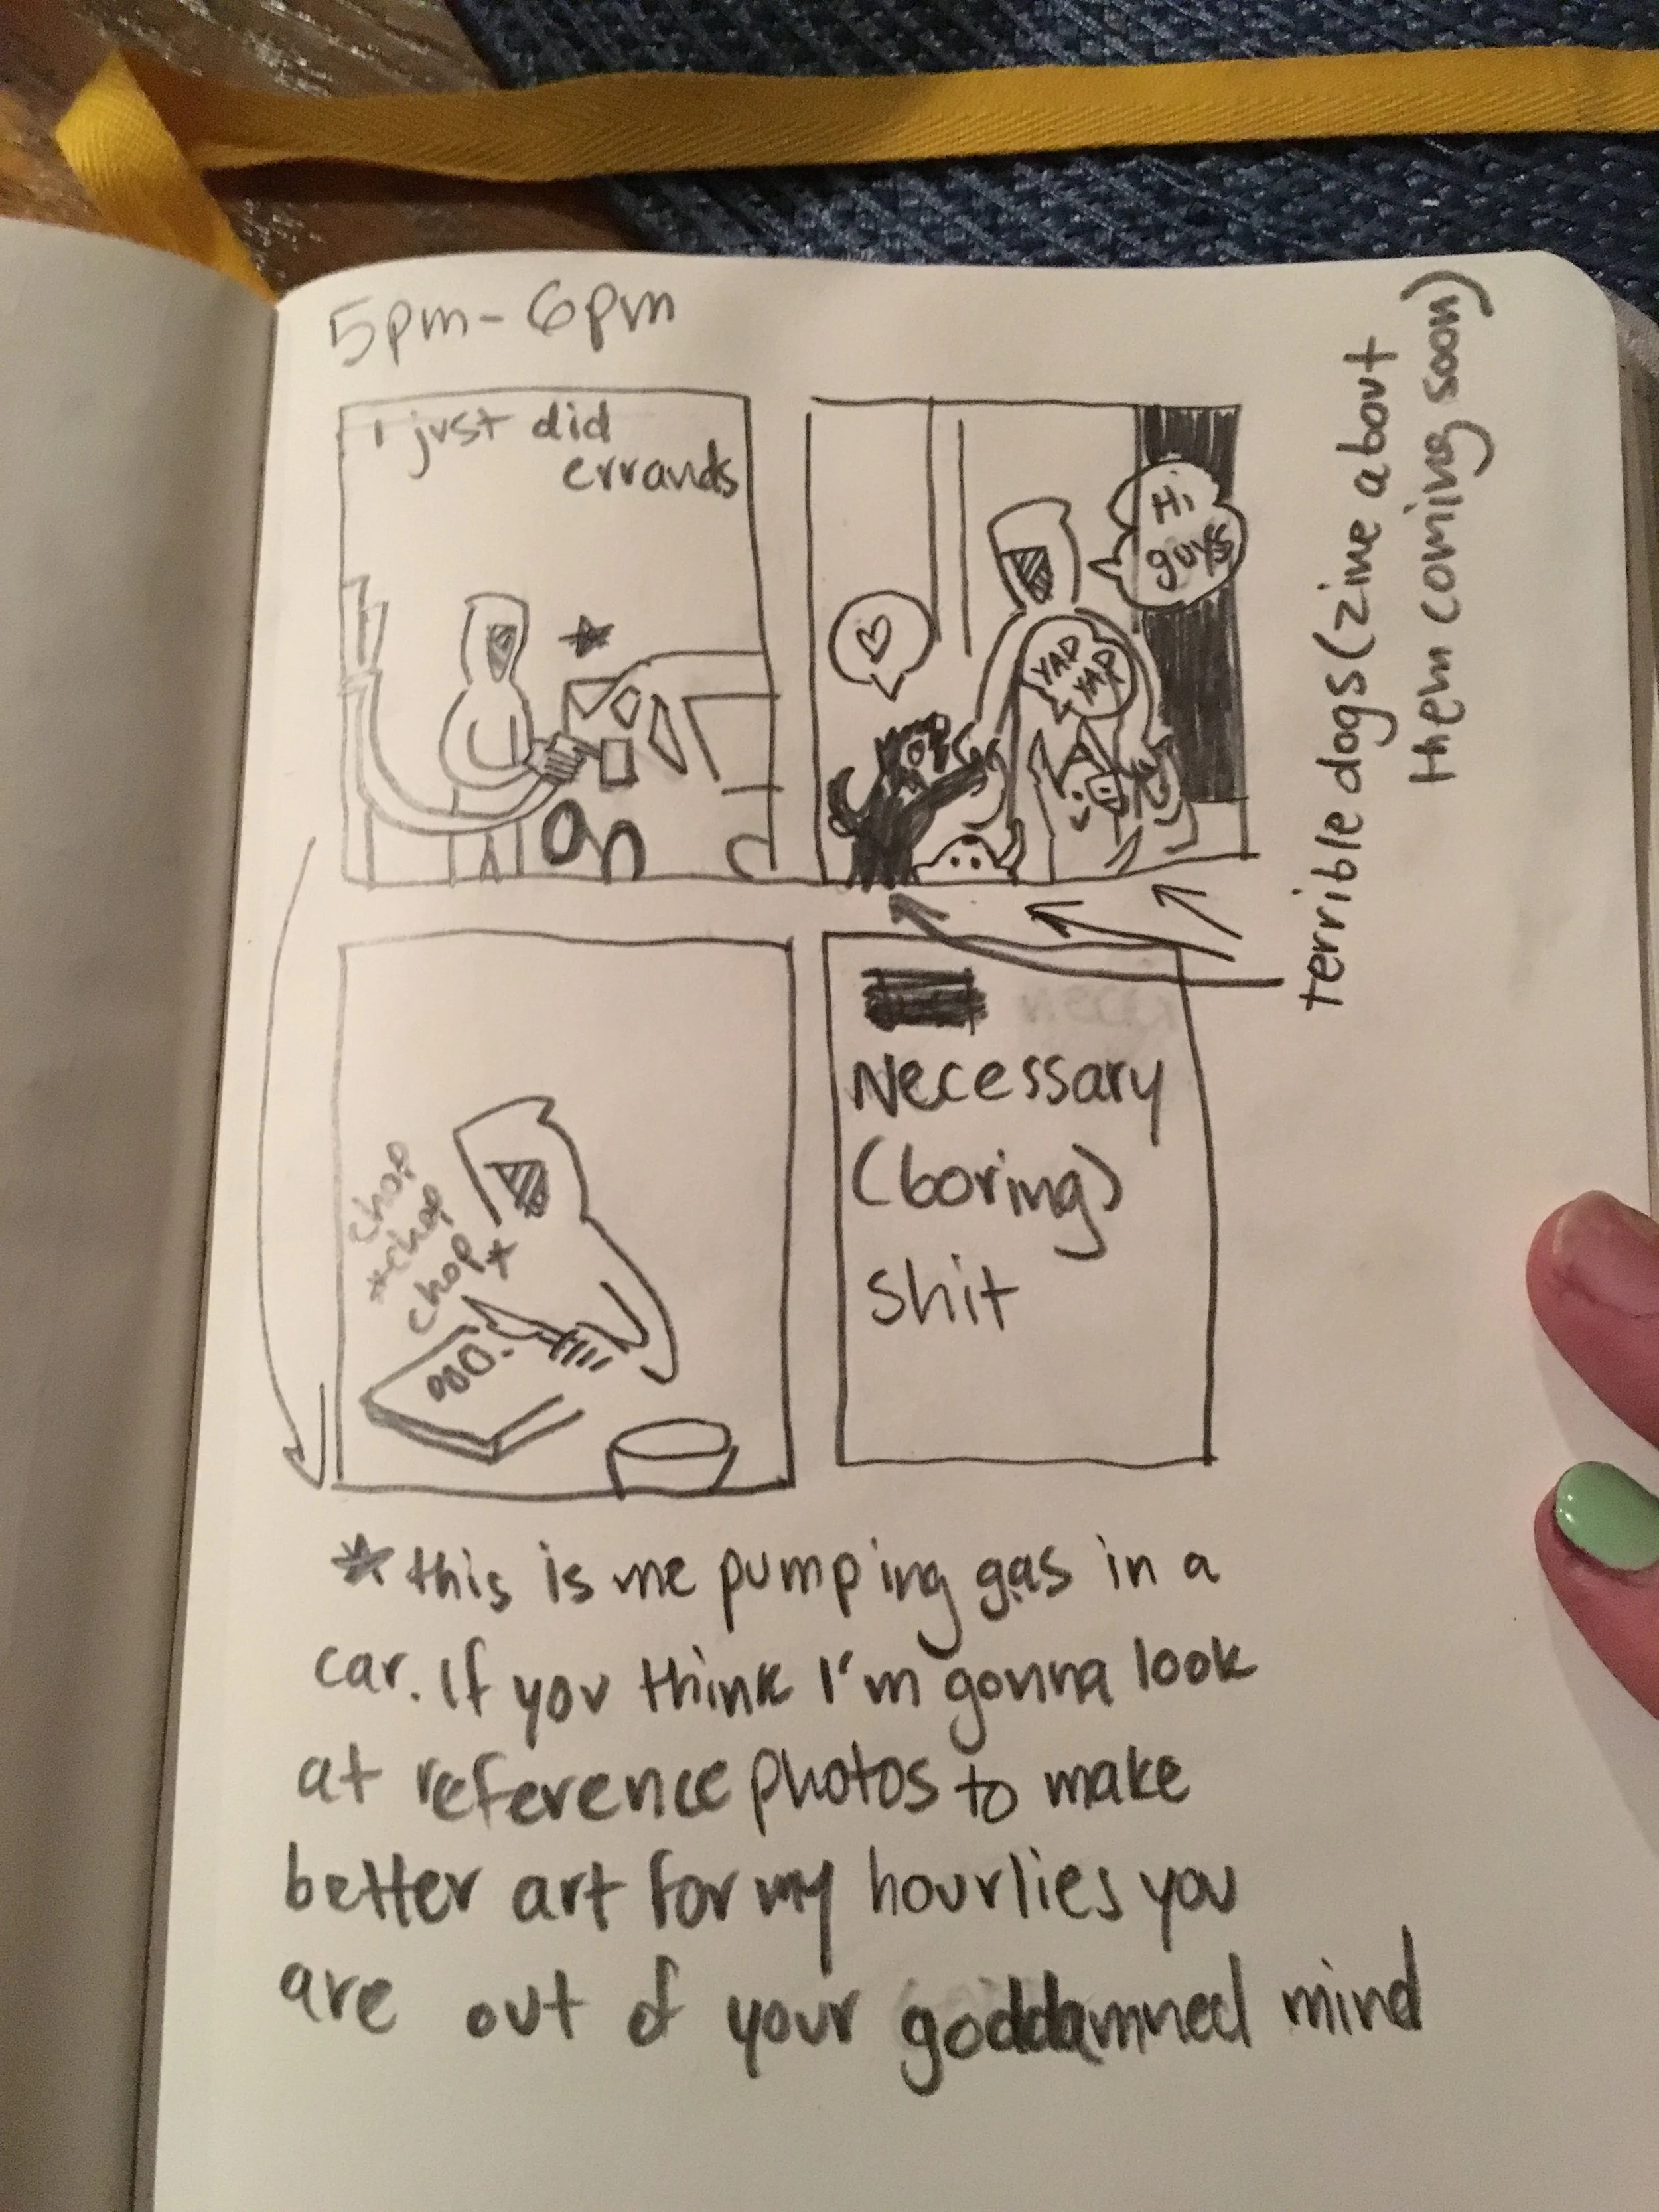 5pm-6pm
i just did
errands
Hi
guys
YAP
YAP
terrible dogs (zine about
them coming soon)
chop
*chop
chop*
Necessary
(boring)
shit
*this is me pumping gas in a
car. If you think I'm gonna look
at reference photos to make
better art for my hourlies you
are out of your goddamned mind